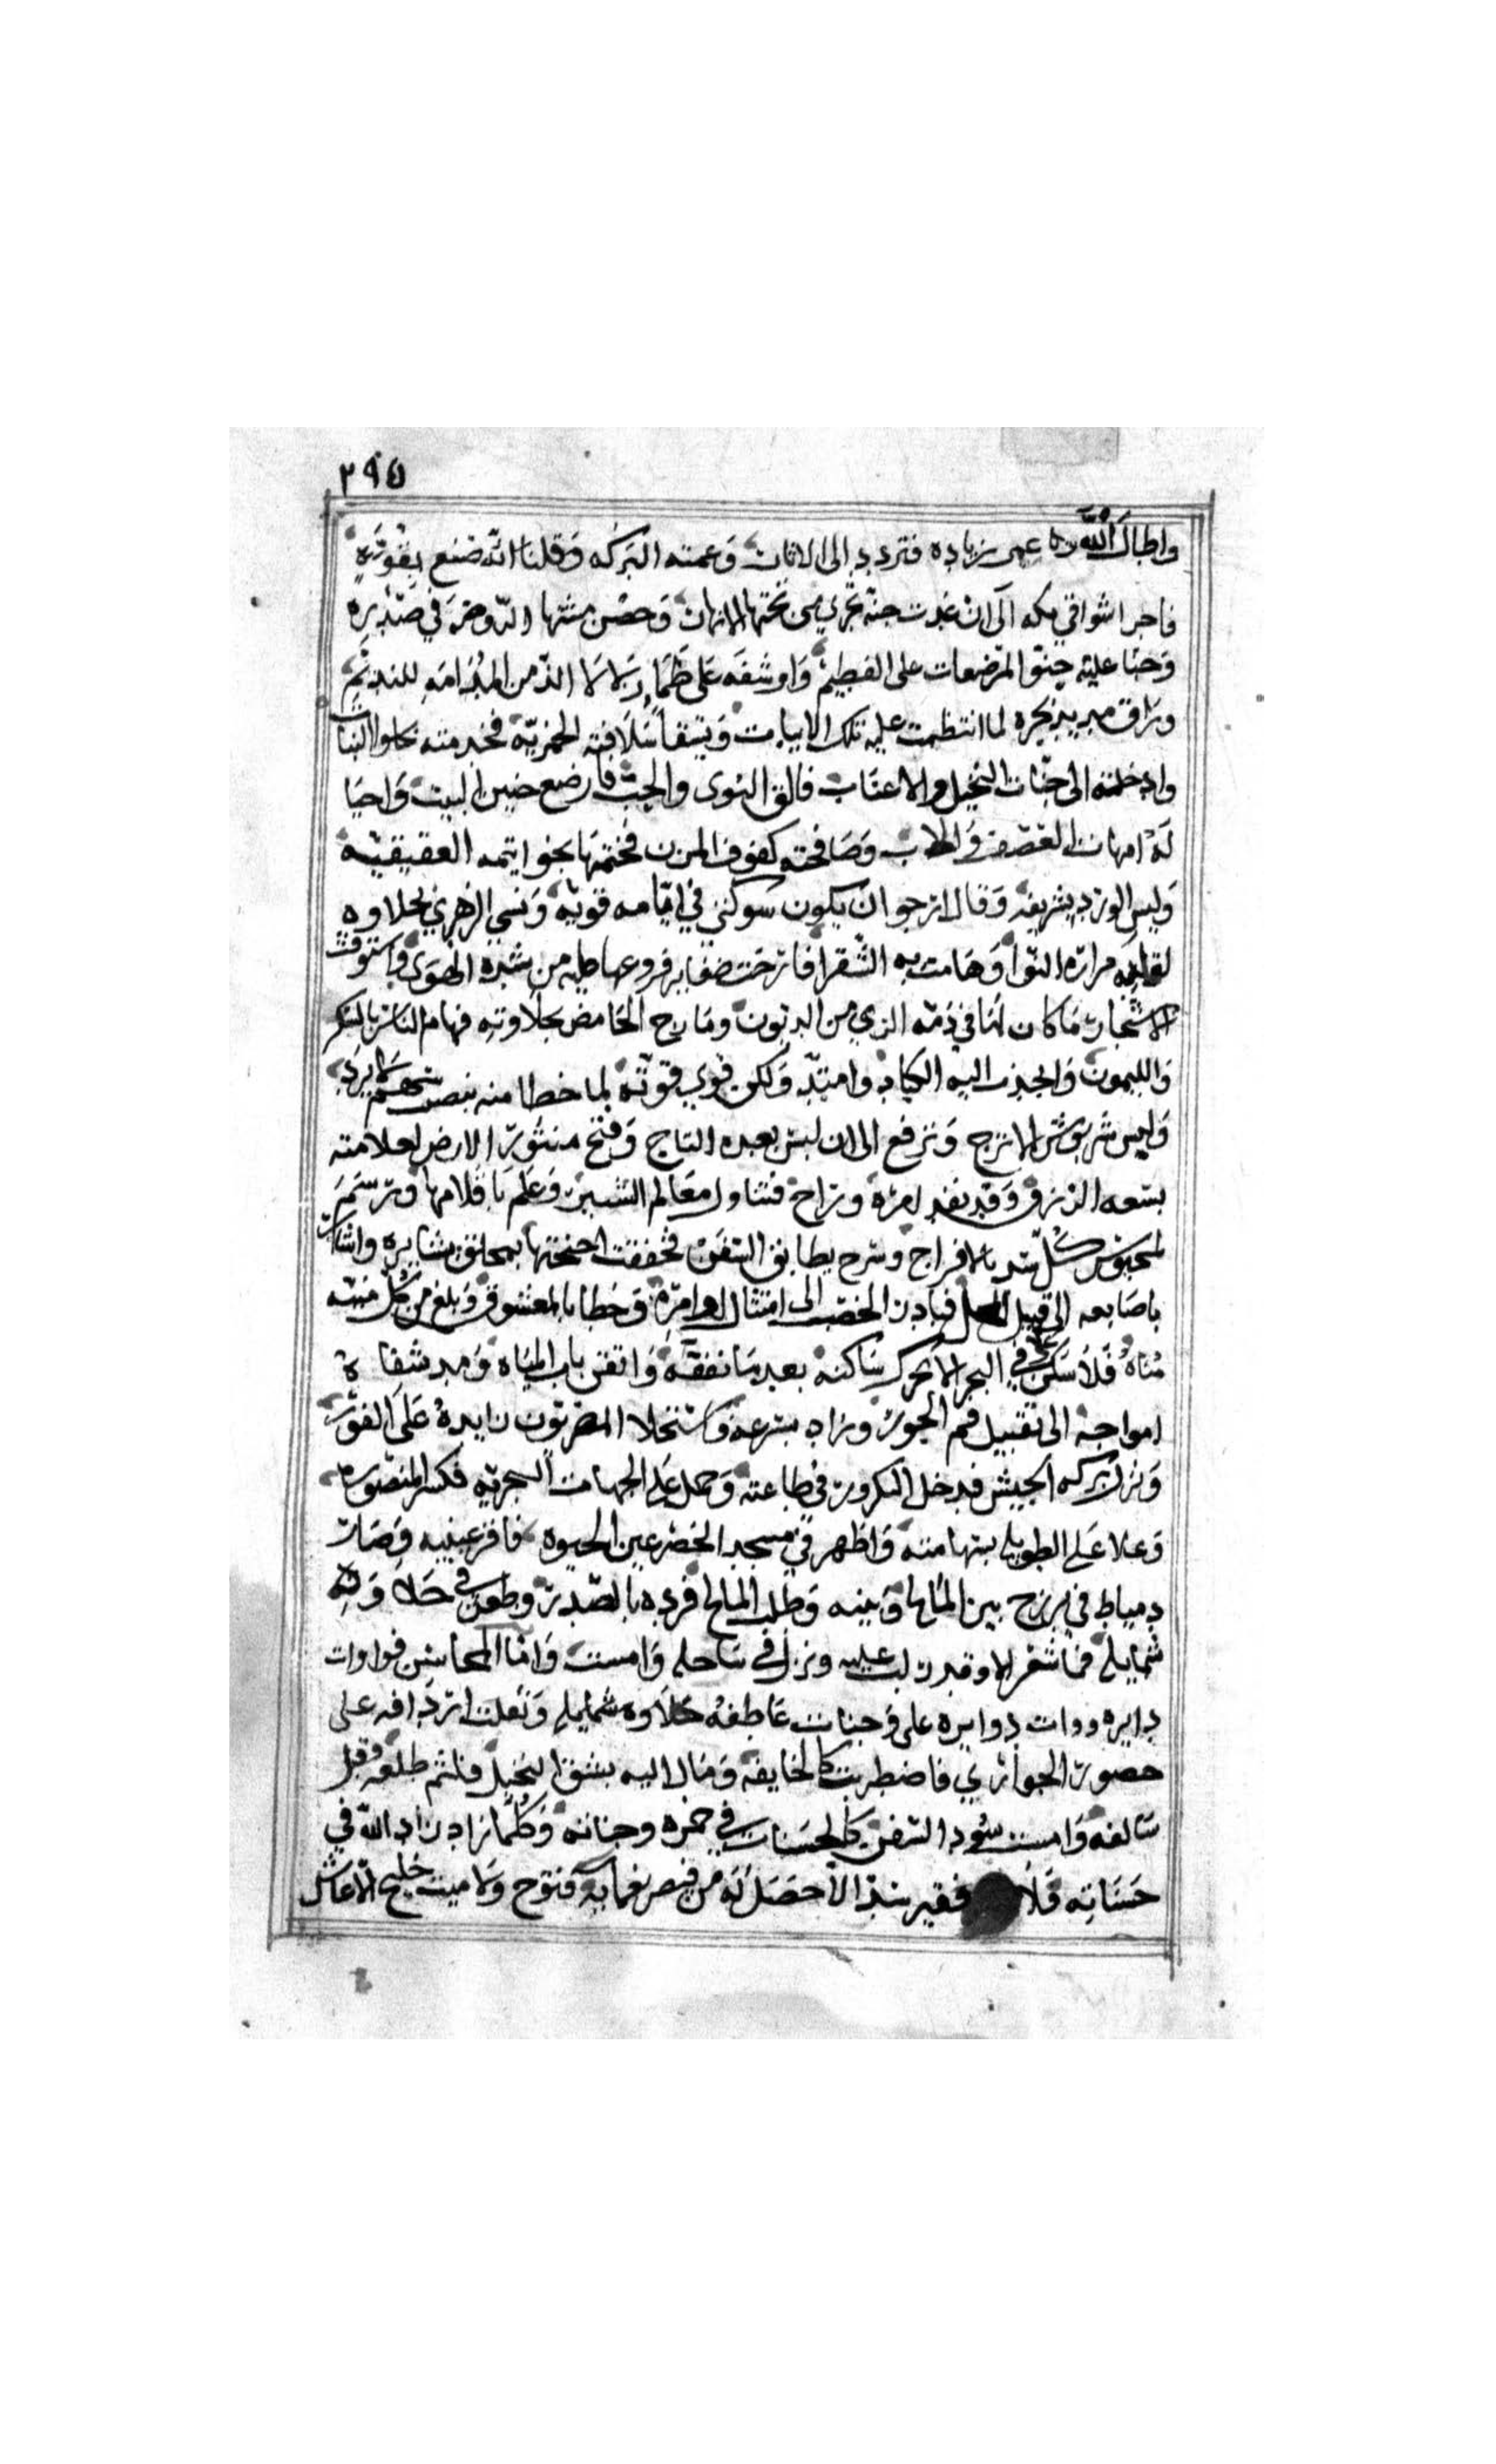 ٢٩٥
واطال الله عمر زياده فتردد الى الاثار وعمته البركه وقلنا انه صنع بقوته
فاجرا شواقي مكه الى ان غدت جنة تجري من تحتها الانهار وحصن مشتها الروضه في صدره
وحنا عليه حنو المرضعات على الفطيم وارشفه على ظما زلالا الذ من المدامه للنديم
وراق مديد بحره لما انتظمت عليه تلك الابيات وسقا سلافته الخمريه فخدمته حلوا النبات
وادخلته الى جنات النخيل والاعناب فالق النوى والحب فارضع جنين النبت واحيا
له امهات العصف والاب وصافحته كفوف الموز فختمها بخواتمه العقيقيه
ولبس الورد تشريفه وقال ارجو ان يكون شوكتي في ايامه قويه ونسي الزهر بحلاوة
لقايه مراره النوا وهامت به الشقرا فارخت ضفاير فروعها عليه من شده الهوى واستوفت
الاشجار ما كان لها في ذمة الري من الديون ومازج الحامض بحلاوته فهام الناس بالسكر
والليمون وانجذب اليه الكباد وامتد ولكن قوي قوسه لما حظا منه بسهم لا يرد
ولبس شربوش الاترج وترفع الى ان لبس بعده التاج وفتح منثور الارض لعلامته
بسعه الرزق وقد نفد امره وراح فتناول معالم الشنبر وعلم باقلامها ورسم
لمحبوس كل سد بالافراج وسرح بطايق السفن فخفقت اجنحتها بمخلق بشايره واشار
باصابعه الى قتيل المحل فبادر الخصب الى امتثال اوامره وحظا بالمعشوق وبلغ من كل منيه
مناه فلا سكن في البحر الا تحرك ساكنه بعد ما تفقه واتقن باب المياه ومد شفاه
امواجه الى تقبيل فم الجور وزاد بسرعه فاستحلا المصريون زايده على الفور
ونزل بركه الحبش فدخل التكرور في طاعته وحمل على الجهات البحريه فكسر المنصوره
وعلا على الطويله بشهامته واظهر في مسجد الخضر عين الحيوه فاقر عينيه وصارت
دمياط في برزخ بين المالح وبينه وطلب المالح فرده بالصدر وطعن في حلاوة
شمايله فما شعر الا وقد ركب عليه ونزل في ساحله وامست واوات
دايره ووات دوايره على وجنات عاطفه حلاوه شمايله وثقلت اردافه على
خصور الجواري فاضطربت كالخايفه ومال اليه شيق النخيل فلثم طلعه وقبل
سالفه وامست سود السفن كالحسنات في حمره وجناته وكلما زاد زاد الله في
حسناته فلا فقير سد الا حصل له من فيض نعمايه فتوح ولا ميت خليج الا عاش